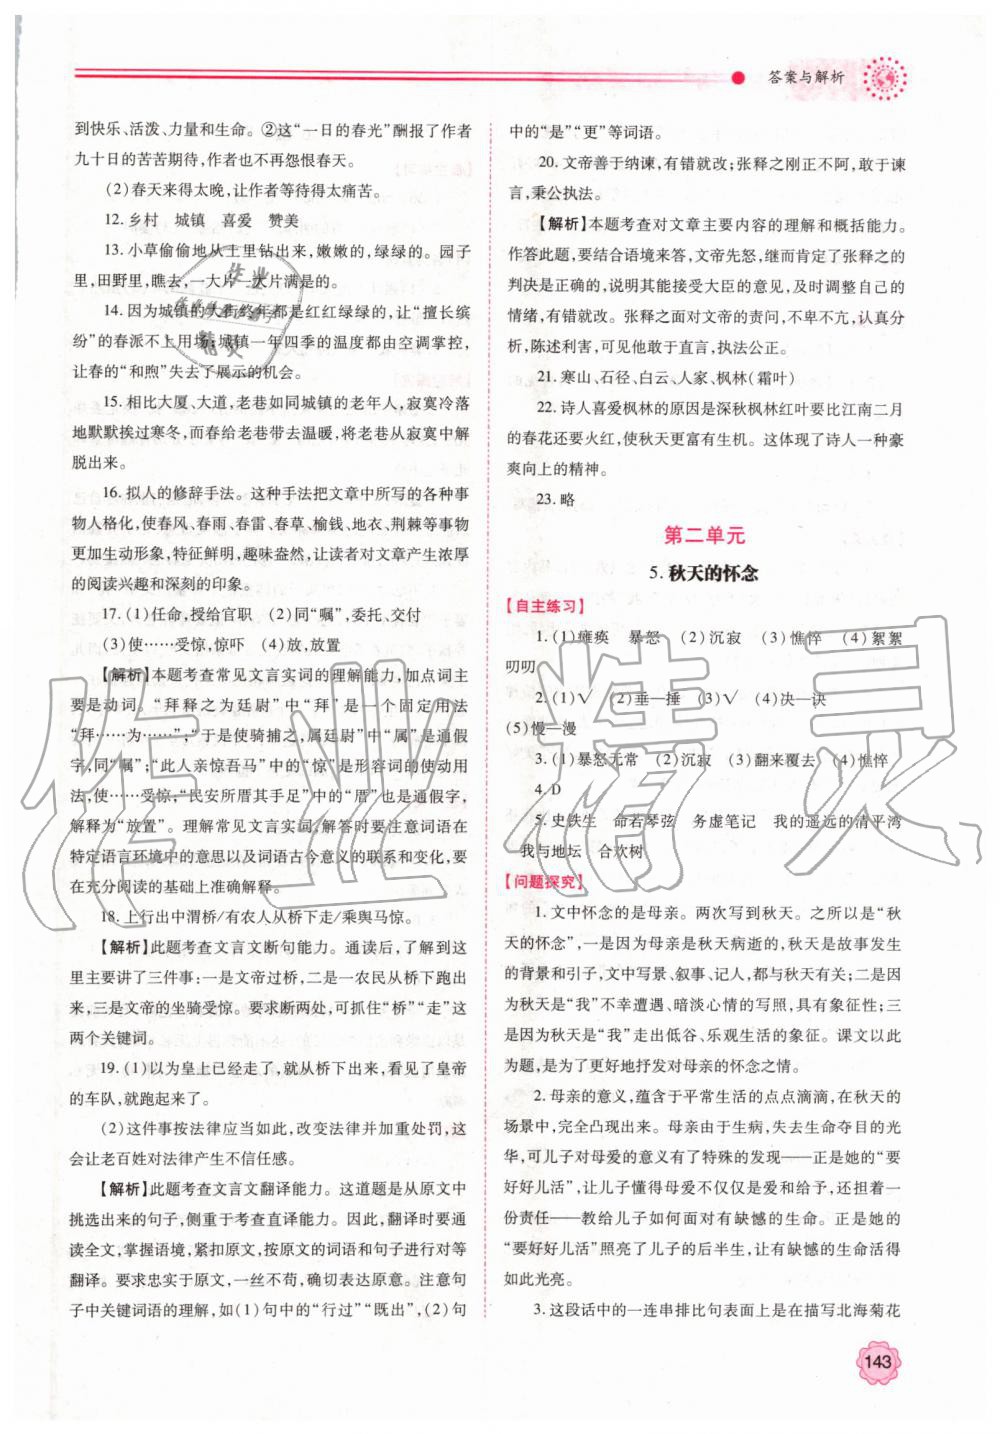 答案与解析
到快乐、活泼、力量和生命。②这“一日的春光”酬报了作者
九十日的苦苦期待,作者也不再怨恨春天。
(2)春天来得太晚,让作者等待得太痛苦。
12. 乡村　城镇　喜爱　赞美
13. 小草偷偷地从土里钻出来,嫩嫩的,绿绿的。园子
里,田野里,瞧去,一大片一大片满是的。
14. 因为城镇的大街终年都是红红绿绿的,让“擅长缤
纷”的春派不上用场;城镇一年四季的温度都由空调掌控,
让春的“和煦”失去了展示的机会。
15. 相比大厦、大道,老巷如同城镇的老年人,寂寞冷落
地默默挨过寒冬,而春给老巷带去温暖,将老巷从寂寞中解
脱出来。
16. 拟人的修辞手法。这种手法把文章中所写的各种事
物人格化,使春风、春雨、春雷、春草、榆钱、地衣、荆棘等事物
更加生动形象,特征鲜明,趣味盎然,让读者对文章产生浓厚
的阅读兴趣和深刻的印象。
17. (1)任命,授给官职　(2)同“嘱”,委托、交付
(3)使……受惊,惊吓　(4)放,放置
【解析】本题考查常见文言实词的理解能力,加点词主
要是动词。“拜释之为廷尉”中“拜”是一个固定用法
“拜……为……”;“于是使骑捕之,属廷尉”中“属”是通假
字,同“嘱”;“此人亲惊吾马”中“惊”是形容词的使动用
法,使……受惊;“民安所厝其手足”中“厝”也是通假字,
解释为“放置”。理解常见文言实词,解答时要注意词语在
特定语言环境中的意思以及词语古今意义的联系和变化,要
在充分阅读的基础上准确解释。
18. 上行出中渭桥/有农人从桥下走/乘舆马惊。
【解析】此题考查文言文断句能力。通读后,了解到这
里主要讲了三件事:一是文帝过桥,二是一农民从桥下跑出
来,三是文帝的坐骑受惊。要求断两处,可抓住“桥”“走”这
两个关键词。
19. (1)以为皇上已经走了,就从桥下出来,看见了皇帝
的车队,就跑起来了。
(2)这件事按法律应当如此,改变法律并加重处罚,这
会让老百姓对法律产生不信任感。
【解析】此题考查文言文翻译能力。这道题是从原文中
挑选出来的句子,侧重于考查直译能力。因此,翻译时要通
读全文,掌握语境,紧扣原文,按原文的词语和句子进行对等
翻译。要求忠实于原文,一丝不苟,确切表达原意。注意句
子中关键词语的理解,如(1)句中的“行过”“既出”,(2)句
中的“是”“更”等词语。
20. 文帝善于纳谏,有错就改;张释之刚正不阿,敢于谏
言,秉公执法。
【解析】本题考查对文章主要内容的理解和概括能力。
作答此题,要结合语境来答。文帝先怒,继而肯定了张释之的
判决是正确的,说明其能接受大臣的意见,及时调整自己的
情绪,有错就改。张释之面对文帝的责问,不卑不亢,认真分
析,陈述利害,可见他敢于直言,执法公正。
21. 寒山、石径、白云、人家、枫林(霜叶)
22. 诗人喜爱枫林的原因是深秋枫林红叶要比江南二月
的春花还要火红,使秋天更富有生机。这体现了诗人一种豪
爽向上的精神。
23. 略
第二单元
5. 秋天的怀念
【自主练习】
1. (1)瘫痪　暴怒　(2)沉寂　(3)憔悴　(4)絮絮
叨叨
2. (1)√　(2)垂—捶　(3)√　(4)决—诀
(5)慢—漫
3. (1)暴怒无常　(2)沉寂　(3)翻来覆去　(4)憔悴
4. D
5. 史铁生　命若琴弦　务虚笔记　我的遥远的清平湾
我与地坛　合欢树
【问题探究】
1. 文中怀念的是母亲。两次写到秋天。之所以是“秋
天的怀念”,一是因为母亲是秋天病逝的,秋天是故事发生
的背景和引子,文中写景、叙事、记人,都与秋天有关;二是因
为秋天是“我”不幸遭遇、暗淡心情的写照,具有象征性;三
是因为秋天是“我”走出低谷、乐观生活的象征。课文以此
为题,是为了更好地抒发对母亲的怀念之情。
2. 母亲的意义,蕴含于平常生活的点点滴滴,在秋天的
场景中,完全凸现出来。母亲由于生病,失去生命夺目的光
华,可儿子对母爱的意义有了特殊的发现——正是她的“要
好好儿活”,让儿子懂得母爱不仅仅是爱和给予,还担有一
份责任——教给儿子如何面对有缺憾的生命。正是她的
“要好好儿活”照亮了儿子的后半生,让有缺憾的生命活得
如此光亮。
3. 这段话中的一连串排比句表面上是在描写北海菊花
143
作业精灵